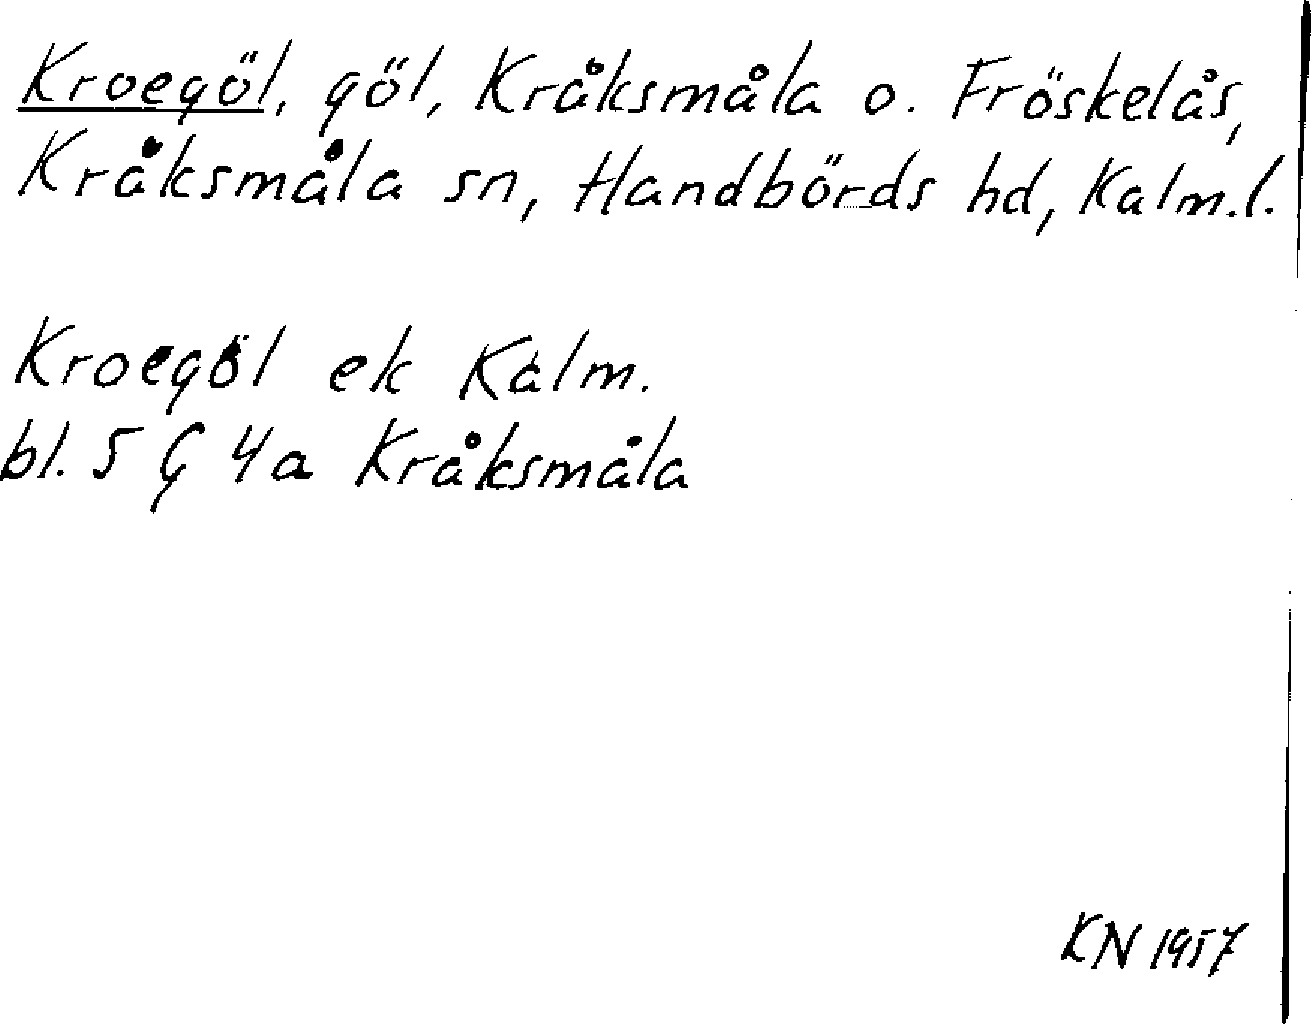 Kroegöl, göl, Kråksmåla o. Fröskelås,
Kråksmåla sn, Handbörds hd, Kalm.l.
Kroegöl ek Kalm.
bl. 5 G 4a Kråksmåla
KN 1957